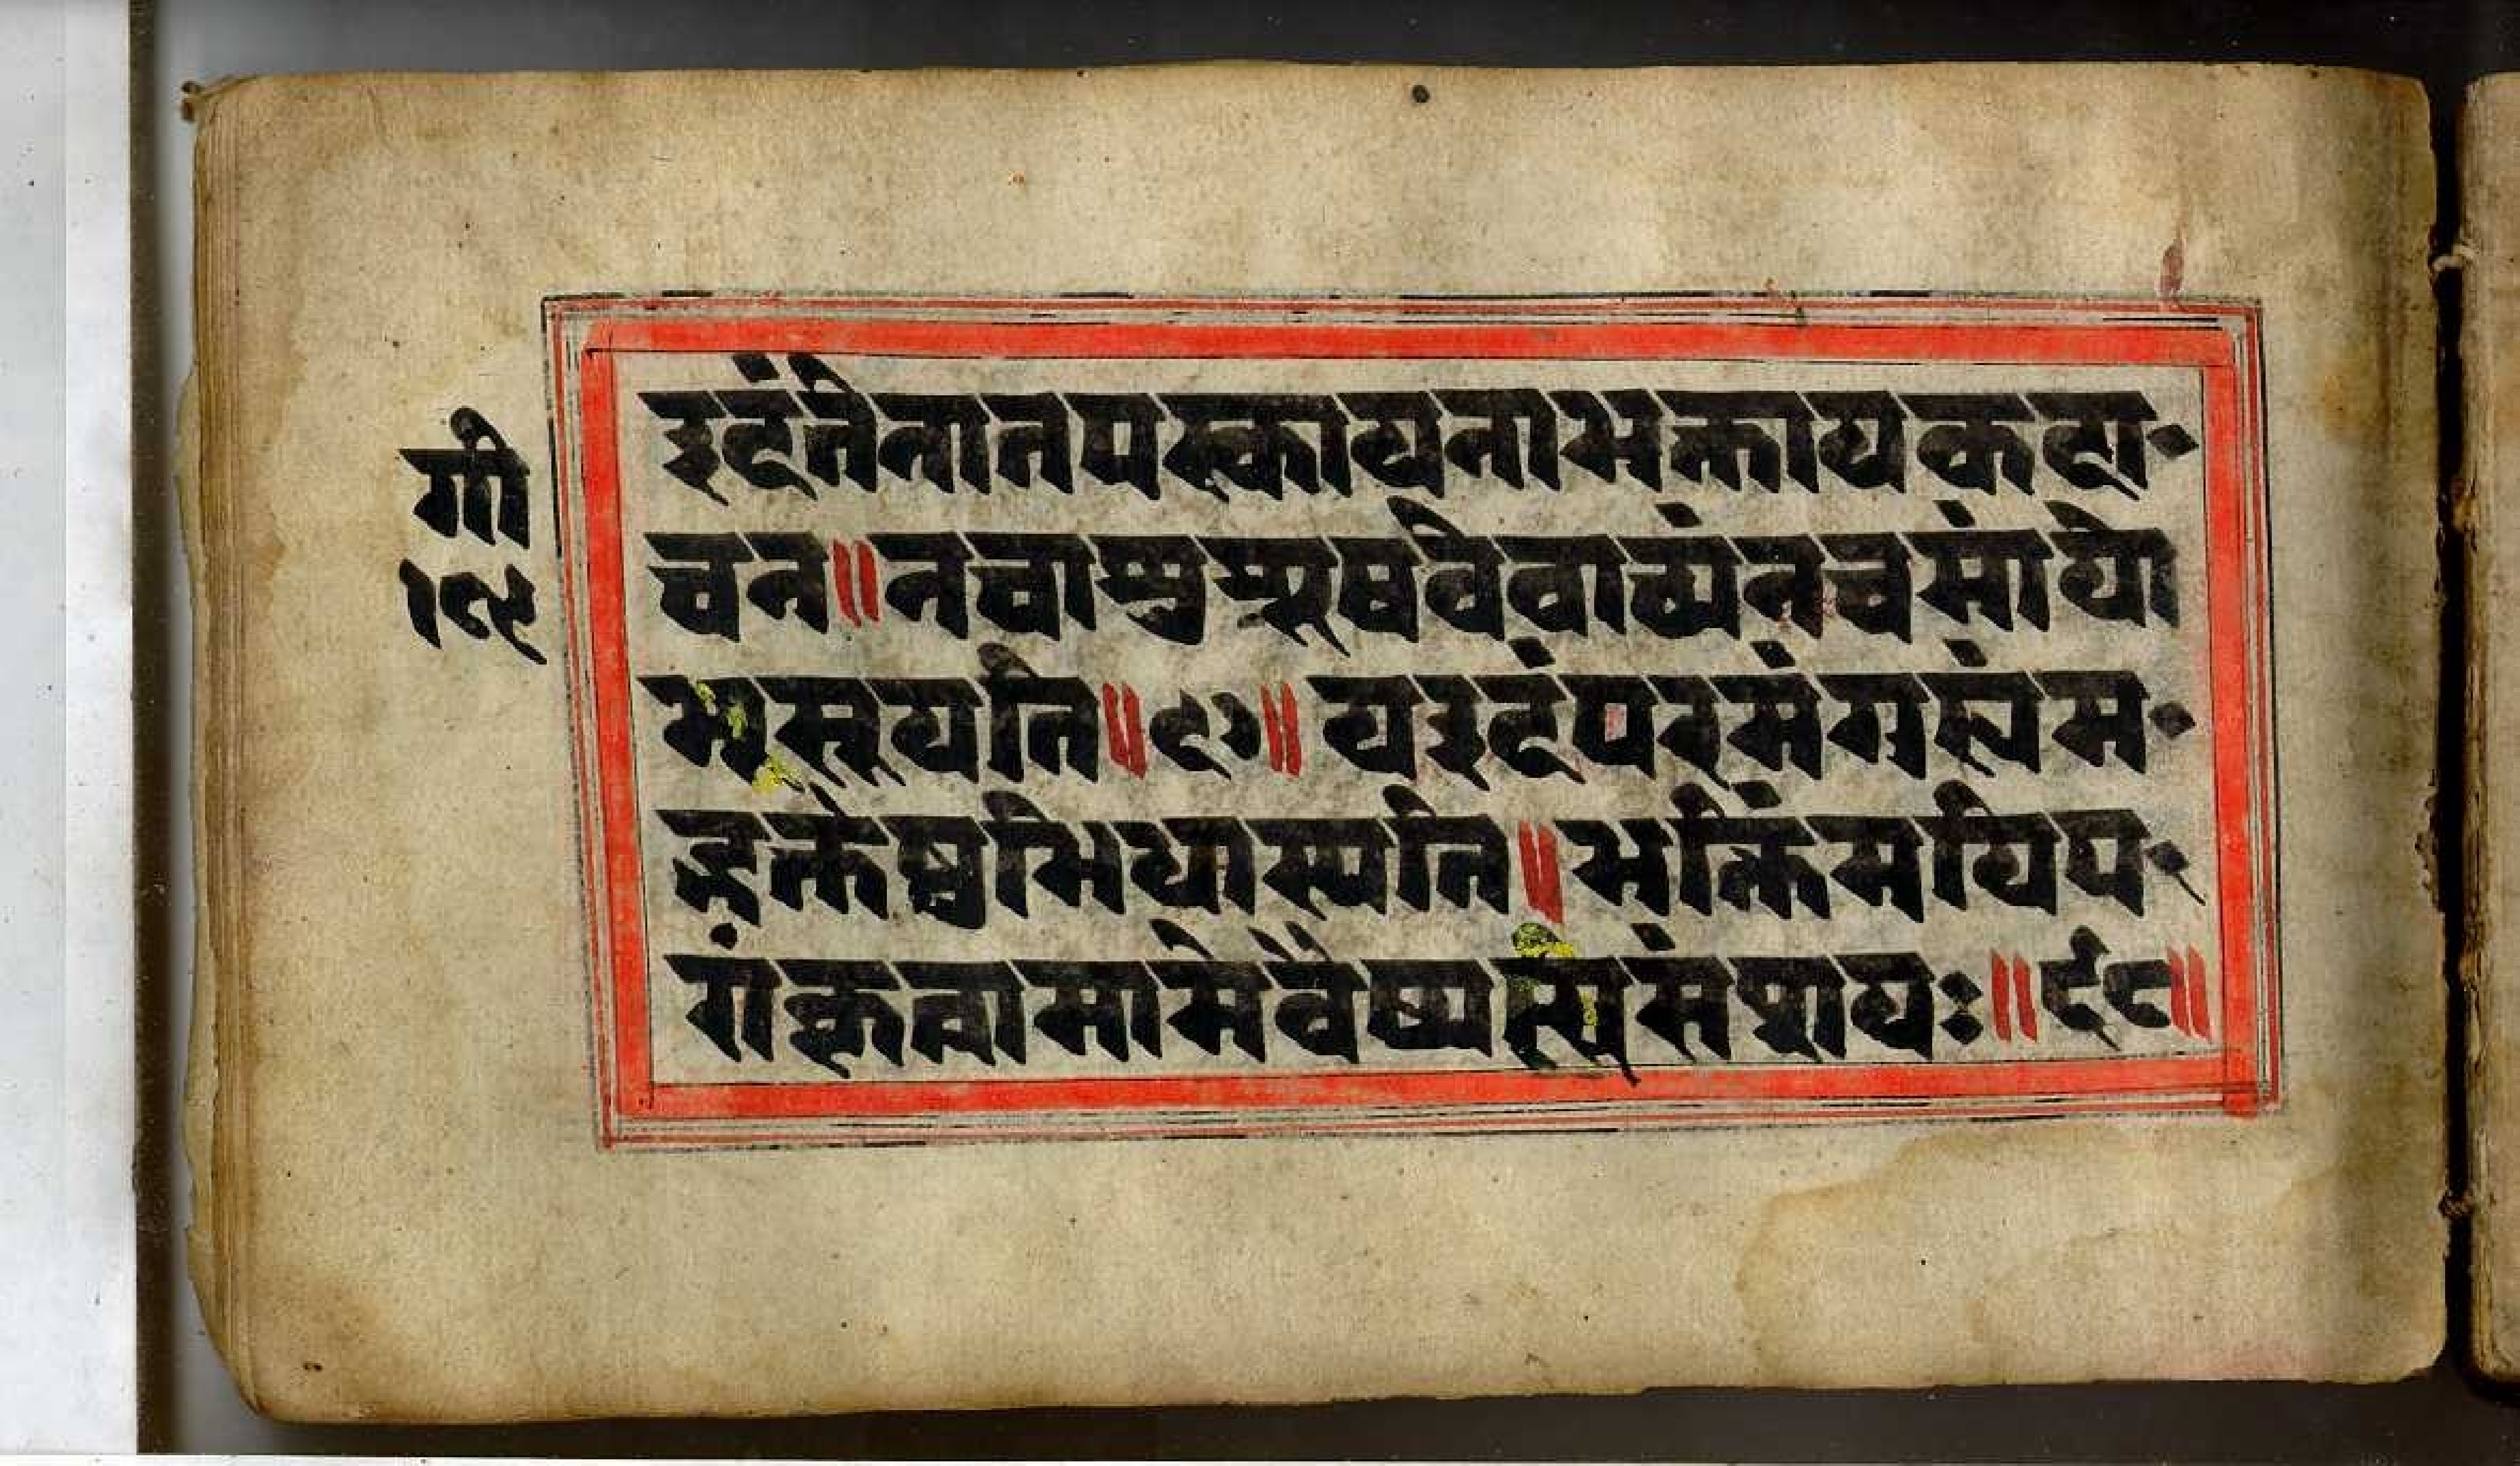 गी
१९
इदंतेनातपस्कायनाभक्तायकदा
चन॥नचाशुश्रूषवेवाच्यंनचमांयो
भ्यसूयति॥६७॥यइदंपरमंगुह्यंम
द्भक्तेष्वभिधास्यति॥भक्तिंमयिप
रांकृत्वामामेवैष्यत्यसंशयः॥६८॥